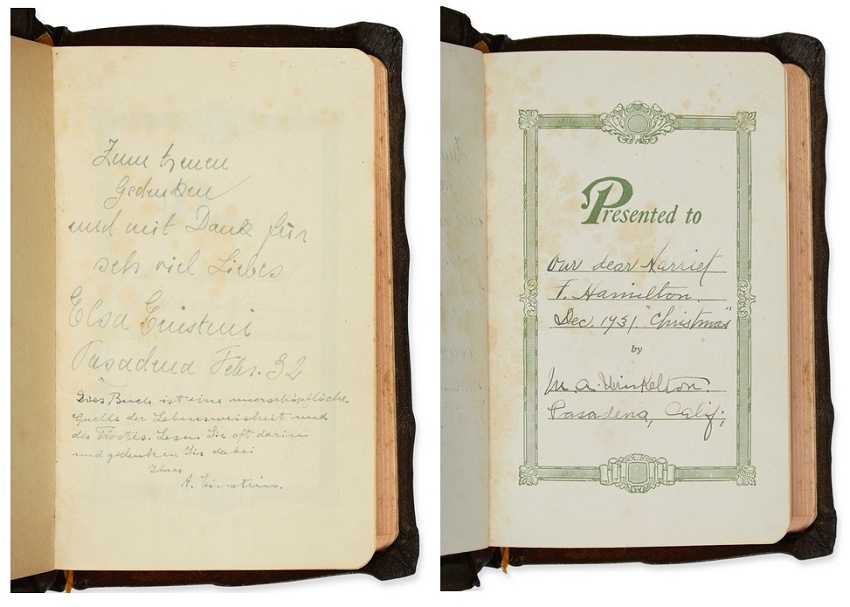 Zum treuen
Gedenken
und mit Dank für
sehr viel Liebes
Elsa Einstein
Pasadena Febr. 32
Dies Buch ist eine unerschöpfliche
Quelle der Lebensweisheit und
des Trostes. Lesen Sie oft darin
und gedenken Sie dabei
Ihres
A. Einstein.
Presented to
Our dear Harriet
F. Hamilton.
Dec. 1931. "Christmas"
by
M. A.
Pasadena, Calif;